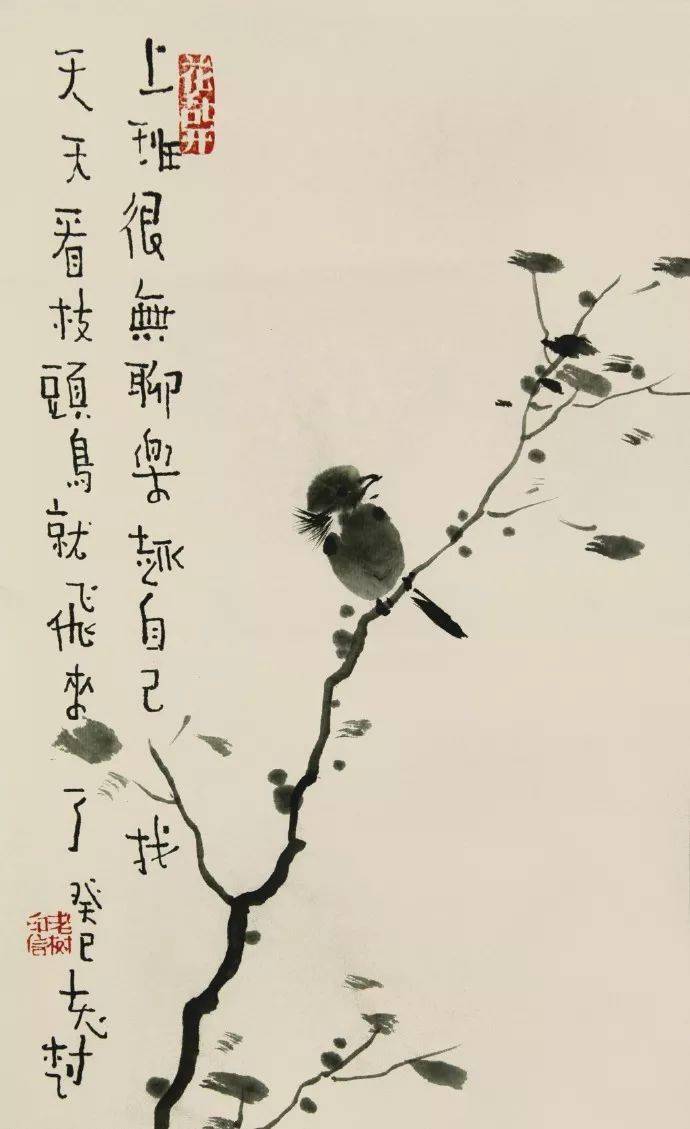 花乱开
上班很無聊樂趣自己找
天天看枝頭鳥就飛來了
癸巳老树
老树